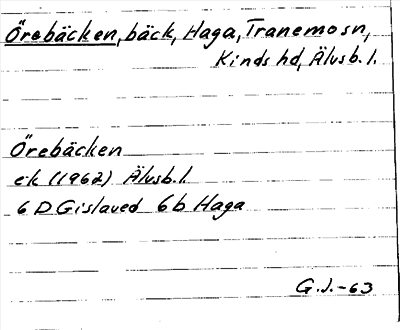 Örebäcken, bäck, Haga, Tranemo sn,
Kinds hd, Älvsb. l.
Örebäcken
ek (1962) Älvsb. l.
6 D Gislaved 6b Haga
G.J. -63